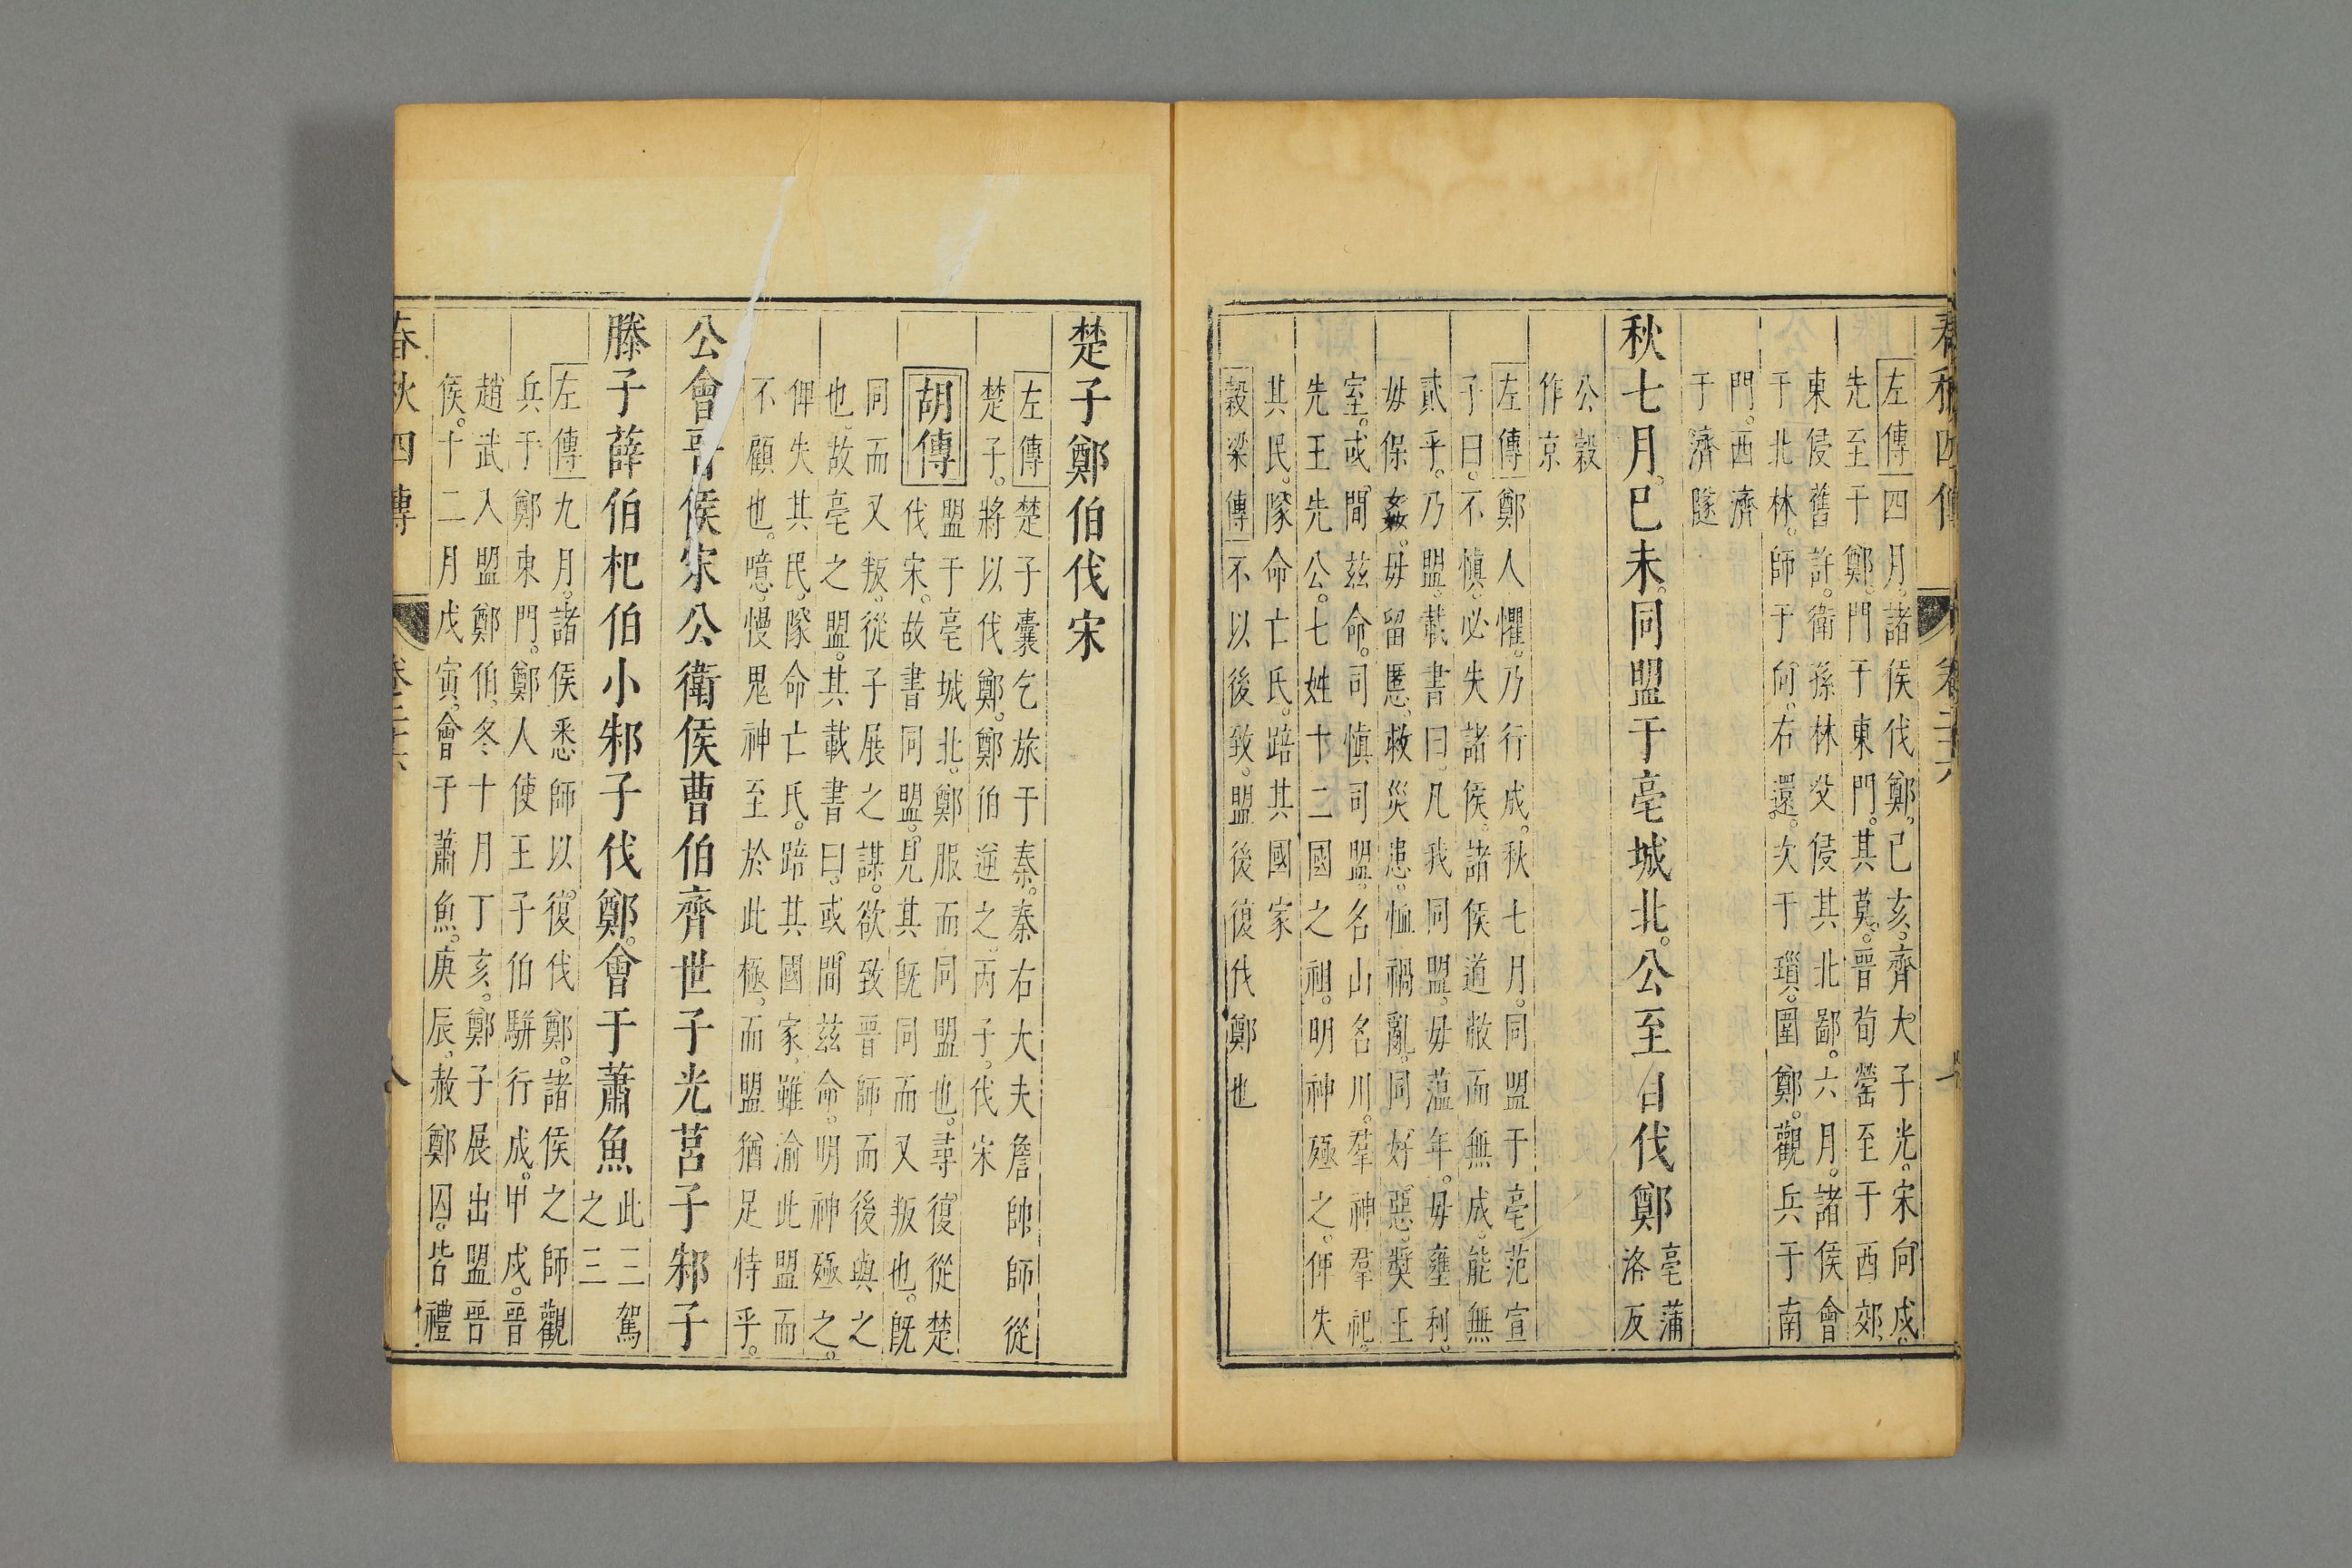 春秋四傳 卷二十六
左傳四月。諸侯伐鄭。己亥。齊大子光。宋向戌。
先至于鄭。門于東門。其莫。晉荀罃至于西郊。
東侵舊許。衛孫林父侵其北鄙。六月。諸侯會
于北林。師于向。右還。次于瑣。圍鄭。觀兵于南
門。西濟
于濟隧
秋七月。己未。同盟于亳城北。公至自伐鄭
亳蒲
洛反
公穀
作京
左傳鄭人懼。乃行成。秋七月。同盟于亳范宣
子曰。不慎。必失諸侯。諸侯道敝而無成。能無
貳乎。乃盟。載書曰。凡我同盟。毋薀年。毋壅利。
毋保姦。毋留慝。救災患。恤禍亂。同好惡。奬王
室。或間茲命。司慎司盟。名山名川。羣神羣祀。
先王先公。七姓十二國之祖。明神殛之。俾失
其民。隊命亡氏。踣其國家
穀梁傳不以後致。盟後復伐鄭也
楚子鄭伯伐宋
左傳楚子囊乞旅于秦。秦右大夫詹帥師從
楚子。將以伐鄭。鄭伯逆之。丙子。伐宋
胡傳
盟于亳城北。鄭服而同盟也。尋復從楚
伐宋。故書同盟。見其旣同而又叛也。旣
同而又叛。從子展之謀。欲致晉師而後與之
也。故亳之盟。其載書曰。或間茲命。明神殛之。
俾失其民。隊命亡氏。踣其國家。雖渝此盟而
不顧也。噫。慢鬼神至於此極。而盟猶足恃乎。
公會晉侯宋公衛侯曹伯齊世子光莒子邾子
滕子薛伯杞伯小邾子伐鄭。會于蕭魚
此三駕
之三
左傳九月。諸侯悉師以復伐鄭。諸侯之師觀
兵于鄭東門。鄭人使王子伯騈行成。甲戌。晉
趙武入盟鄭伯。冬十月丁亥。鄭子展出盟晉
侯。十二月戊寅。會于蕭魚。庚辰。赦鄭囚。皆禮
春秋四傳 卷二十六 八